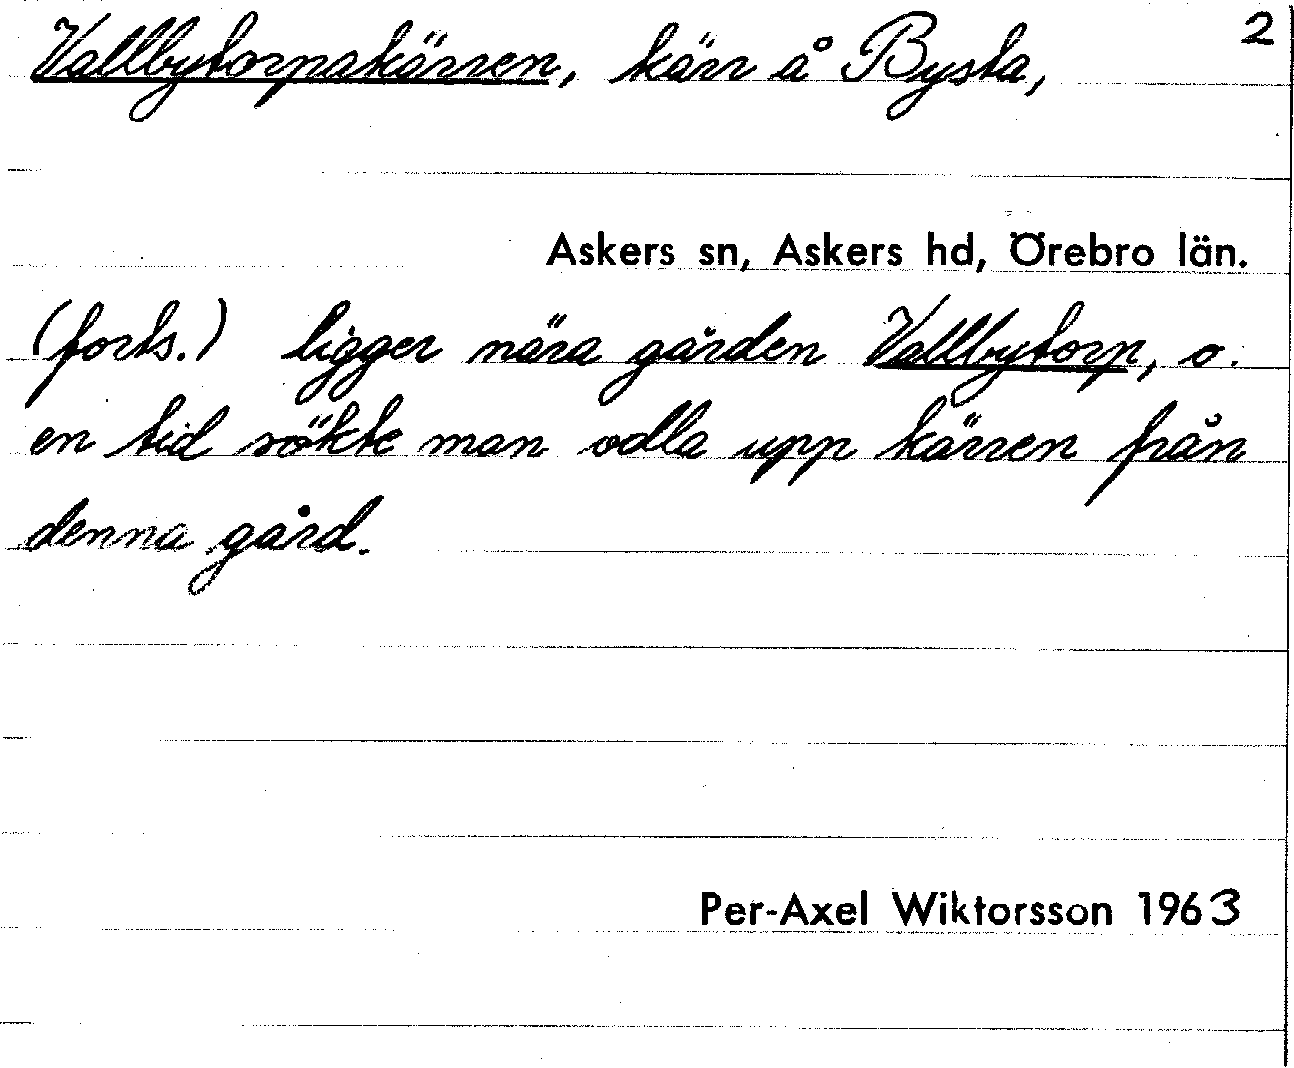 Vallbytorpakärren, kärr å Bysta, 2
Askers sn, Askers hd, Örebro län.
(forts.) ligger nära gården Vallbytorp, o.
en tid sökte man odla upp kärren från
denna gård.
Per-Axel Wiktorsson 1963